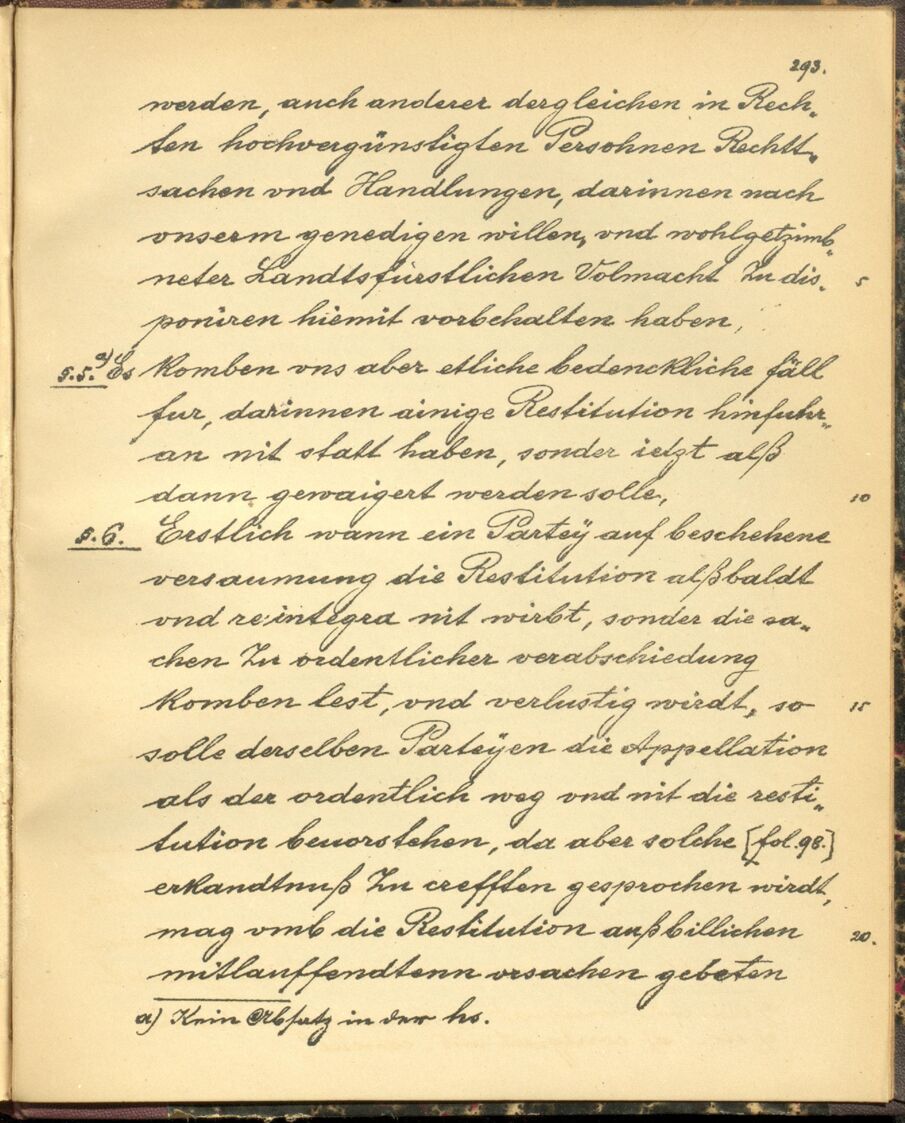 293.
werden, auch anderer dergleichen in Rech„
ten hochvergünstigten Persohnen Rechtt„
sachen vnd Handlungen, darinnen nach
vnserm genedigen willen, vnd wohlgetzimb„
neter Landtsfürstlichen Volmacht Zu dis„ 5
poniren hiemit vorbehalten haben,
§.5. a) Es Komben vns aber etliche bedenckliche fäll
fur, darinnen ainige Restitution hinfuhr„
an nit statt haben, sonder ietzt alß
dann gewaigert werden solle, 10
§.6. Erstlich wann ein Parteÿ auf beschehene
versaumung die Restitution alßbaldt
vnd re:integra nit wirbt, sonder die sa„
chen Zu ordentlicher verabschiedung
Komben lest, vnd verlustig wirdt, so 15
solle derselben Parteÿen die Appellation
als der ordentlich weg vnd nit die resti„
tution beuorstehen, da aber solche [fol. 98.]
erkandtnuß Zu crefften gesprochen wirdt,
mag vmb die Restitution außbillichen 20.
mitlauffendtenn vrsachen gebeten
a) Kein Absatz in der hs.